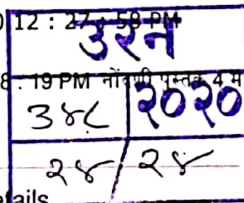 12 : 27 : 58 PM
उरन
8 : 19 PM नोंदणी पुस्तक 4 म
३४८ २०२०
२४ / २४
etails